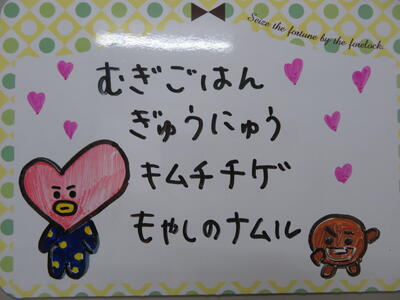 Seize the fortune by the forelock.
むぎごはん
ぎゅうにゅう
キムチチゲ
もやしのナムル